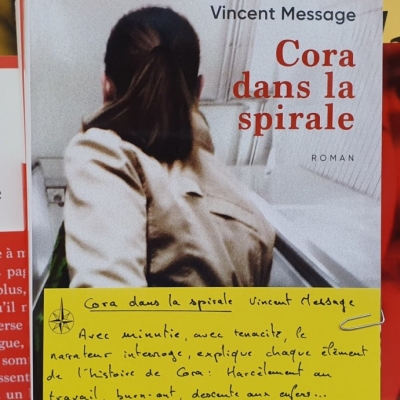 Vincent Message
Cora
dans la
spirale
ROMAN
e à m
pag
plus,
u'il r
erse
gue,
som
ssent
Cora dans la spirale Vincent Message
Avec minutie, avec tenacité, le
narrateur interroge, explique chaque élément
de l'histoire de Cora : Harcèlement au
travail, burn-out, descente aux enfers...